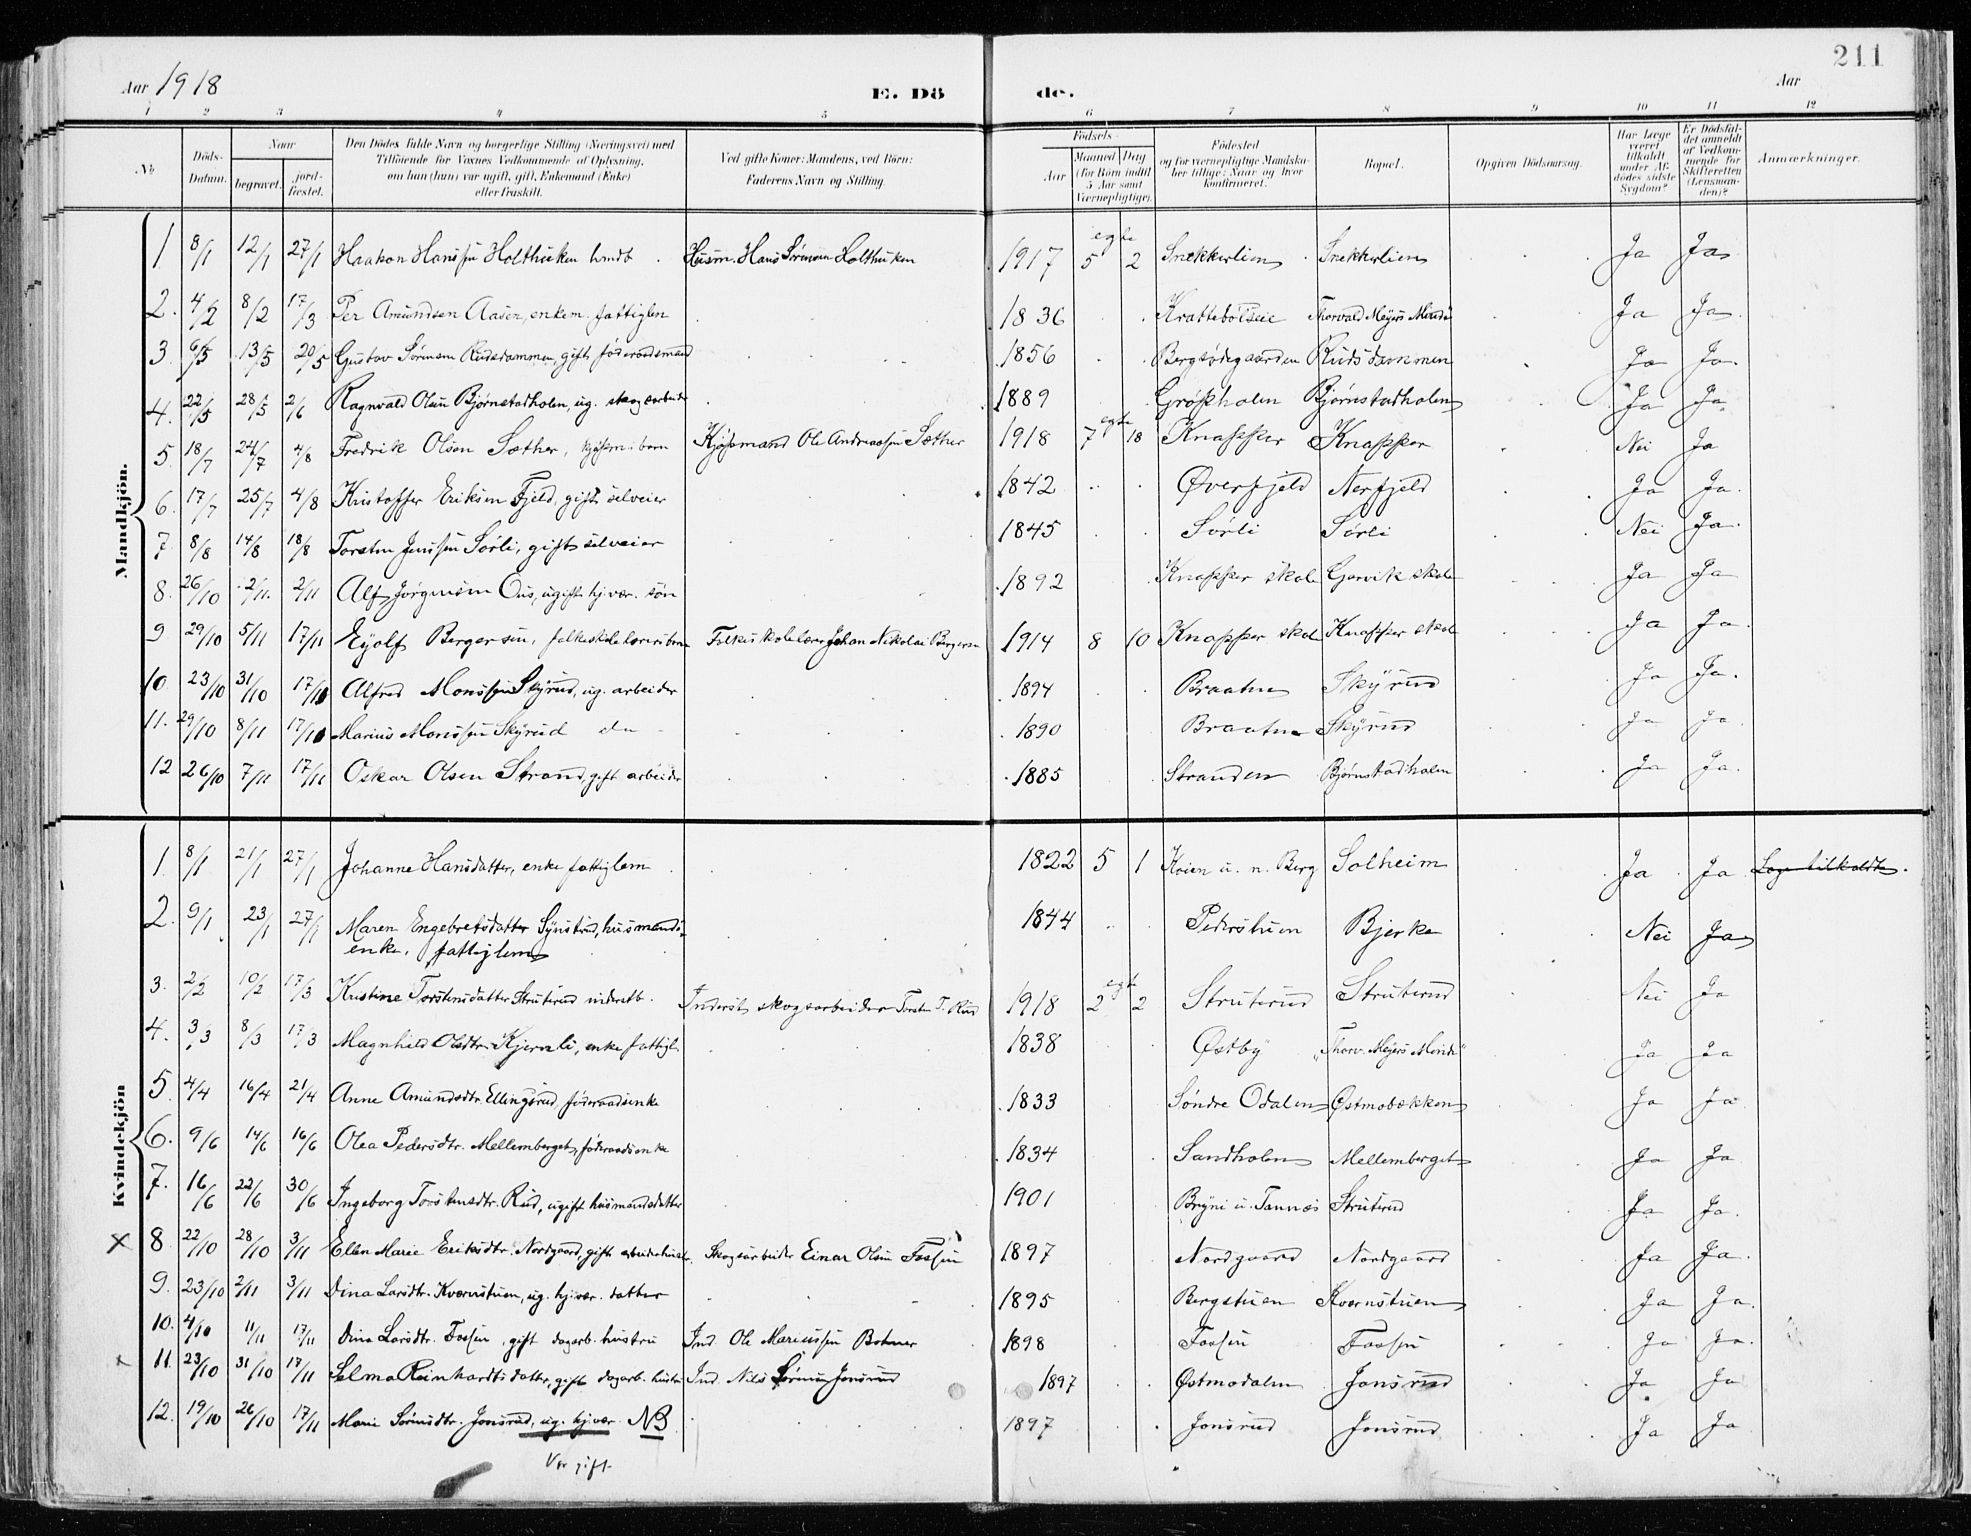 211
Aar 1918 E. Dö de. Aar
1 2 3 4 5 6 7 8 9 10 11 12
No
Döds-Datum.
Naar begravet. jordfæstet.
Den Dödes fulde Navn og borgerlige Stilling (Næringsvei) med
Tilföiende for Voxnes Vedkommende af Oplysning,
om han (hun) var ugift, gift, Enkemand (Enke)
eller fraskilt.
Ved gifte Koner: Mandens, ved Börn:
Faderens Navn og Stilling.
Födsels-
Aar Maaned Dag
(for Börn indtil
5 Aar samt
Værnepligtige).
Födested
og for værnepligtige Mandskaber tillige: Naar og hvor
konfirmeret.
Bopæl.
Opgiven Dödsaarsag.
Har Læge været tilkaldt under Afdödes sidste Sygdom?
Er Dödsfaldet anmeldt af Vedkommende for Skifteretten (Lensmanden)?
Anmærkninger.
Mandkjön.
1 8/1 12/1 27/1 Haakon Hanssen Holthuken Husm. Hans Sörensen Holthuken 1917 egte 5 2 Snekkerlien Snekkerlien Ja Ja
2. 4/2 8/2 17/3 Per Amundsen Aasen, enkem. fattiglem 1836 Thorvald Meyers Minde Ja Ja
3. 6/5 13/5 20/5 Gustav Sörensen Rudsdammen, gift föderaadsmand 1856 Bergsödegaarden Rudsdammen Ja Ja
4. 22/5 28/5 2/6 Ragnvald Olsen Bjørnstadholen, ug. skogsarbeider 1889 Grøpholen Bjørnstadholen Ja Ja
5. 18/7 24/7 4/8 Fredrik Olsen Sæther, kjøpm. barn Kjøpmand Ole Andreassen Sæther 1918 egte 7 18 Knapper Knapper Nei Ja
6. 17/7 25/7 4/8 Kristoffer Eriksen Fjeld, gift selveier 1842 Øverfjeld Nerfjeld Ja Ja
7 8/8 14/8 18/8 Torsten Jenssen Sørli, gift selveier 1845 Sørli Sørli Nei Ja
8. 26/10 2/11. 2/11 Alf Jörgensen Ous, ugift hj.vær. sön 1892 Knapper skole Gjervik skole Ja Ja
9 29/10 5/11 17/11 Eyolf Bergersen, folkeskolelærers barn Folkeskolelærer Johan Nikolai Bergersen 1914 8 10 Knapper skole Knapper skole Ja Ja
10 23/10 31/10 17/11 Alfred Monssen Skyrud, ug. arbeider 1894 Braaten Skyrud Ja Ja
11. 29/10 8/11 17/11 Marius Monssen Skyrud do 1890 Braaten Skyrud Ja Ja
12 26/10 7/11 17/11 Oskar Olsen Strand, gift arbeider 1885 Stranden Bjørnstadholen Ja Ja
Kvindekjön
1 8/1 21/1 27/1 Johanne Hansdatter, enke fattiglem 1822 5 1 Koien u. n. Berg Solheim Ja Ja Læge tilkaldt.
2. 9/1 23/1 27/1 Maren Engebretsdatter Synstrud, husmands-
enke, fattiglem 1844 Pederstuen Bjerke Nei Ja
3. 2/2 10/2 17/3 Kristine Torstensdatter Struterud inderstb. Inderst skogsarbeider Torsten T. Rud 1918 egte 2 2 Struterud Struterud Nei Ja
4. 3/3 8/3 17/3 Magnhild Olsdtr. Kjernli, enke fattigl. 1838 Østby "Thorv. Meyers Minde" Ja Ja
5 4/4 16/4 21/4 Anne Amundsdtr. Ellingsrud, föderaadsenke 1833 Søndre Odalen Østmobækken Ja Ja
6. 9/6 14/6 16/6 Olea Pedersdtr. Mellemberget, föderaadsenke 1834 Sandholen Mellemberget Ja Ja
7. 16/6 22/6 30/6 Ingeborg Torstensdtr. Rud, ugift husmandsdatter 1901 Bryni u. Tannæs Struterud Ja Ja
X 8 22/10 28/10 3/11 Ellen Marie Eriksdtr. Nordgaard, gift arbeiderhustr. Skogsarbeider Einar Olsen Fossen 1897 Nordgaard Nordgaard Ja Ja
9. 23/10 2/11 3/11 Dina Larsdtr. Kvernstuen, ug. hj.vær. datter 1895 Bergstuen Kvernstuen Ja Ja
10. 4/10 11/11 17/11 Dina Larsdtr. Fossen, gift dagarb. hustru Ind. Ole Mariussen 1898 Fossen Fossen Ja Ja
11. 23/10 31/10 17/11 Selma Reinhardtsdatter, gift dagarb. hustru Ind. Nils Sørensen Jonsrud 1897 Østmodalen Jonsrud Ja Ja
12. 19/10 26/10 17/11 Marie Sørensdtr. Jonsrud, ug. hj.vær. NB 1897 Jonsrud Jonsrud Ja Ja
Var gift.